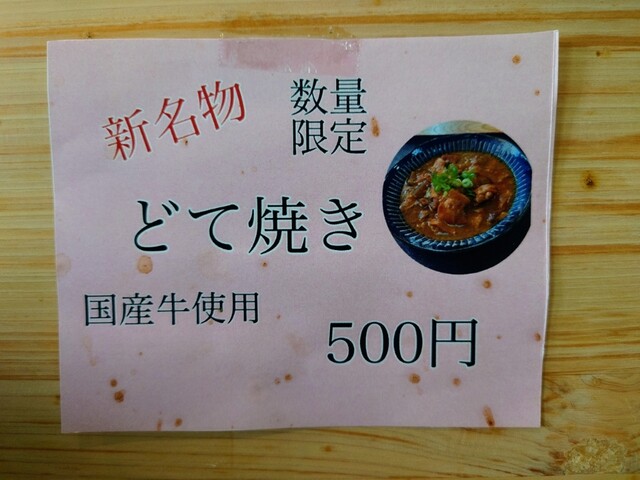 新名物
数量
限定
どて焼き
国産牛使用
500円